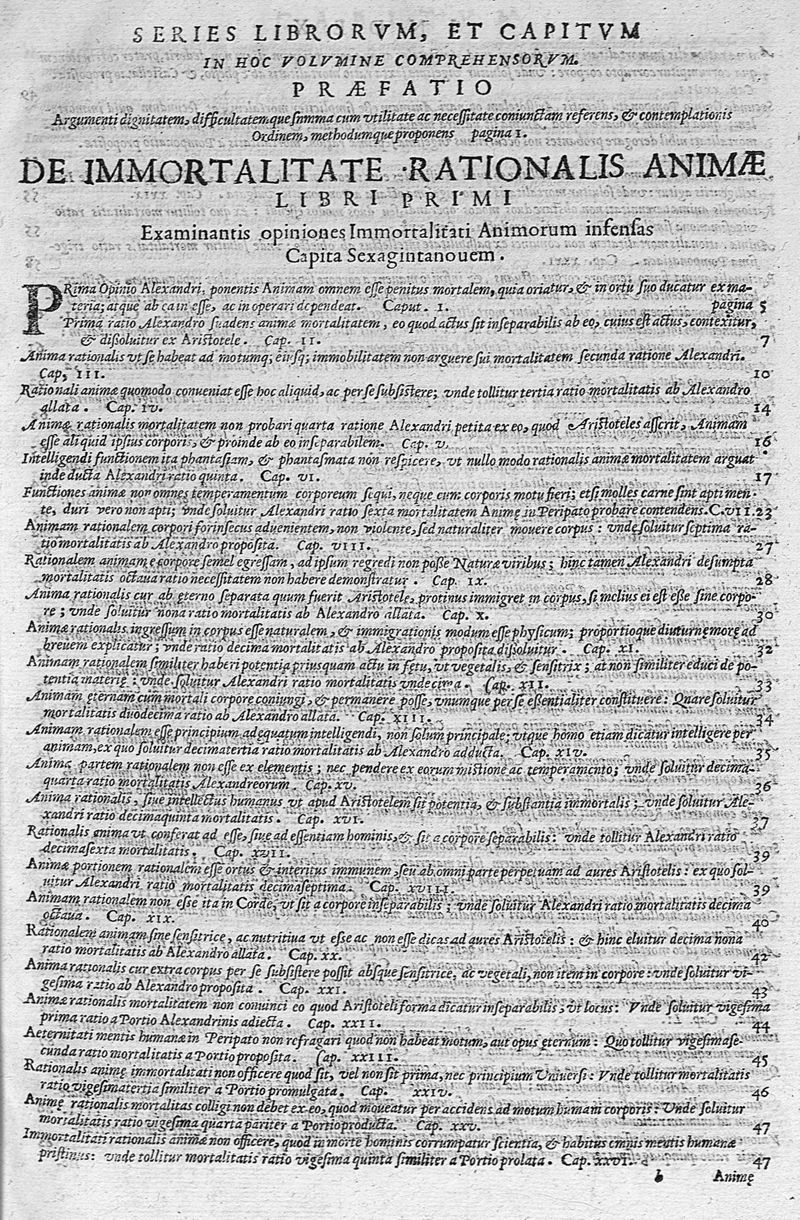 SERIES LIBRORVM, ET CAPITVM
IN HOC VOLVMINE COMPREHENSORVM.
PRÆFATIO
Argumenti dignitatem, difficultatemque summa cum vtilitate ac necessitate coniunctam referens, & contemplationis
Ordinem, methodumque proponens pagina 1.
DE IMMORTALITATE RATIONALIS ANIMÆ
LIBRI PRIMI
Examinantis opiniones Immortalitati Animorum infensas
Capita Sexagintanouem.
PRima Opinio Alexandri, ponentis Animam omnem esse penitus mortalem, quia oriatur, & in ortu suo ducatur ex ma-
teria; atque ab ea in esse, ac in operari dependeat. Caput. I. pagina 5
Prima ratio Alexandro suadens animæ mortalitatem, eo quod actus sit inseparabilis ab eo, cuius est actus, contexitur,
& dissoluitur ex Aristotele. Cap. II. 7
Anima rationalis vt se habeat ad motumq; eiusq; immobilitatem non arguere sui mortalitatem secunda ratione Alexandri.
Cap, III. 10
Rationali animæ quomodo conueniat esse hoc aliquid, ac per se subsistere; vnde tollitur tertia ratio mortalitatis ab Alexandro
allata. Cap. IV. 14
Animæ rationalis mortalitatem non probari quarta ratione Alexandri petita ex eo, quod Aristoteles asserit, Animam
esse aliquid ipsius corporis, & proinde ab eo inseparabilem. Cap. V. 16
Intelligendi functionem ita phantasiam, & phantasmata non respicere, vt nullo modo rationalis animæ mortalitatem arguat
inde ducta Alexandri ratio quinta. Cap. VI. 17
Functiones animæ non omnes temperamentum corporeum sequi, neque cum corporis motu fieri; etsi molles carne sint apti men-
te, duri vero non apti; vnde soluitur Alexandri ratio sexta mortalitatem Animę in Peripato probare contendens. C.VII. 23
Animam rationalem corpori forinsecus aduenientem, non violente, sed naturaliter mouere corpus: vnde soluitur septima ra-
tio mortalitatis ab Alexandro proposita. Cap. VIII. 27
Rationalem animam e corpore semel egressam, ad ipsum regredi non posse Naturæ viribus; hinc tamen Alexandri desumpta
mortalitatis octaua ratio necessitatem non habere demonstratur. Cap. IX. 28
Anima rationalis cur ab ęterno separata quum fuerit Aristotele, protinus immigret in corpus, si melius ei est esse sine corpo-
re; vnde soluitur nona ratio mortalitatis ab Alexandro allata. Cap. X. 30
Animæ rationalis ingressum in corpus esse naturalem, & immigrationis modum esse physicum; proportioque diuturnę moræ ad
breuem explicatur; vnde ratio decima mortalitatis ab Alexandro proposita dissoluitur. Cap. XI. 32
Animam rationalem similiter haberi potentia priusquam actu in fętu, vt vegetalis, & sensitrix; at non similiter educi de po-
tentia materię: vnde soluitur Alexandri ratio mortalitatis vndecima. Cap. XII. 33
Animam ęternam cum mortali corpore coniungi, & permanere posse, vnumque per se essentialiter constituere: Quare soluitur
mortalitatis duodecima ratio ab Alexandro allata. Cap. XIII. 34
Animam rationalem esse principium adequatum intelligendi, non solum principale; vtque homo etiam dicatur intelligere per
animam, ex quo soluitur decimatertia ratio mortalitatis ab Alexandro adducta. Cap. XIV. 35
Animæ partem rationalem non esse ex elementis; nec pendere ex eorum mistione ac temperamento; vnde soluitur decima-
quarta ratio mortalitatis Alexandreorum. Cap. XV. 36
Anima rationalis, siue intellectus humanus vt apud Aristotelem sit potentia, & substantia immortalis; vnde soluitur Ale-
xandri ratio decimaquinta mortalitatis. Cap. XVI. 37
Rationalis anima vt conferat ad esse, siue ad essentiam hominis, & sit a corpore separabilis: vnde tollitur Alexandri ratio
decimasexta mortalitatis. Cap. XVII. 39
Animæ portionem rationalem esse ortus & interitus immunem, seu ab omni parte perpetuam ad aures Aristotelis: ex quo sol-
uitur Alexandri ratio mortalitatis decimaseptima. Cap. XVIII. 39
Animam rationalem non esse ita in Corde, vt sit a corpore inseparabilis; vnde soluitur Alexandri ratio mortalitatis decima
octaua. Cap. XIX. 40
Rationalem animam sine sensitrice, ac nutritiua vt esse ac non esse dicas ad aures Aristotelis: & hinc eluitur decima nona
ratio mortalitatis ab Alexandro allata. Cap. XX. 42
Anima rationalis cur extra corpus per se subsistere possit absque sensitrice, ac vegetali, non item in corpore: vnde soluitur vi-
gesima ratio ab Alexandro proposita. Cap. XXI. 43
Animæ rationalis mortalitatem non conuinci eo quod Aristoteli forma dicatur inseparabilis, vt locus: Vnde soluitur vigesima
prima ratio a Portio Alexandrinis adiecta. Cap. XXII. 44
Aeternitati mentis humanæ in Peripato non refragari quod non habeat motum, aut opus ęternum: Quo tollitur vigesimase-
cunda ratio mortalitatis a Portio proposita. Cap. XXIII. 45
Rationalis animę immortalitati non officere quod sit, vel non sit prima, nec principium Vniuersi: Vnde tollitur mortalitatis
ratio vigesimatertia similiter a Portio promulgata. Cap. XXIV. 46
Animę rationalis mortalitas colligi non debet ex eo, quod moueatur per accidens ad motum humani corporis: Vnde soluitur
mortalitatis ratio vigesima quarta pariter a Portio producta. Cap. XXV. 47
Immortalitati rationalis animæ non officere, quod in morte hominis corrumpatur scientia, & habitus omnis mentis humanæ
pristinus: vnde tollitur mortalitatis ratio vigesima quinta similiter a Portio prolata. Cap. XXVI. 47
b Animę